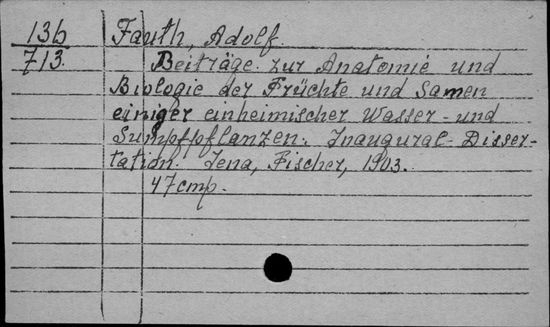 13б Fauth, Adolf.
713. Beiträge zur Anatomie und
Biologie der Früchte und Samen
einiger einheimischer Wasser- und
Sumpfpflanzen. Inaugural-Disser-
tation. Jena, Fischer, 1903.
47 стр.